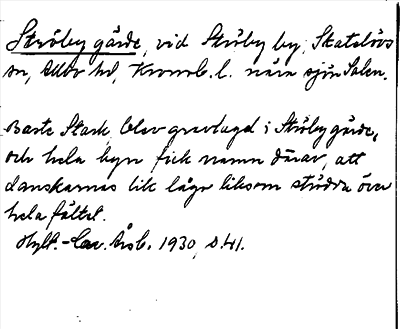 Ströby gärde, vid Ströby by, Skatelövs
sn, Allbo hd, Kronob. l. nära sjön Salen.
Stark, blev gravlagd i Ströby gärde,
och hela byn fick namn därav, att
danskarnas lik lågo liksom strödda över
hela fältet.
Hylt.-Cav. Årsb. 1930, s. 41.